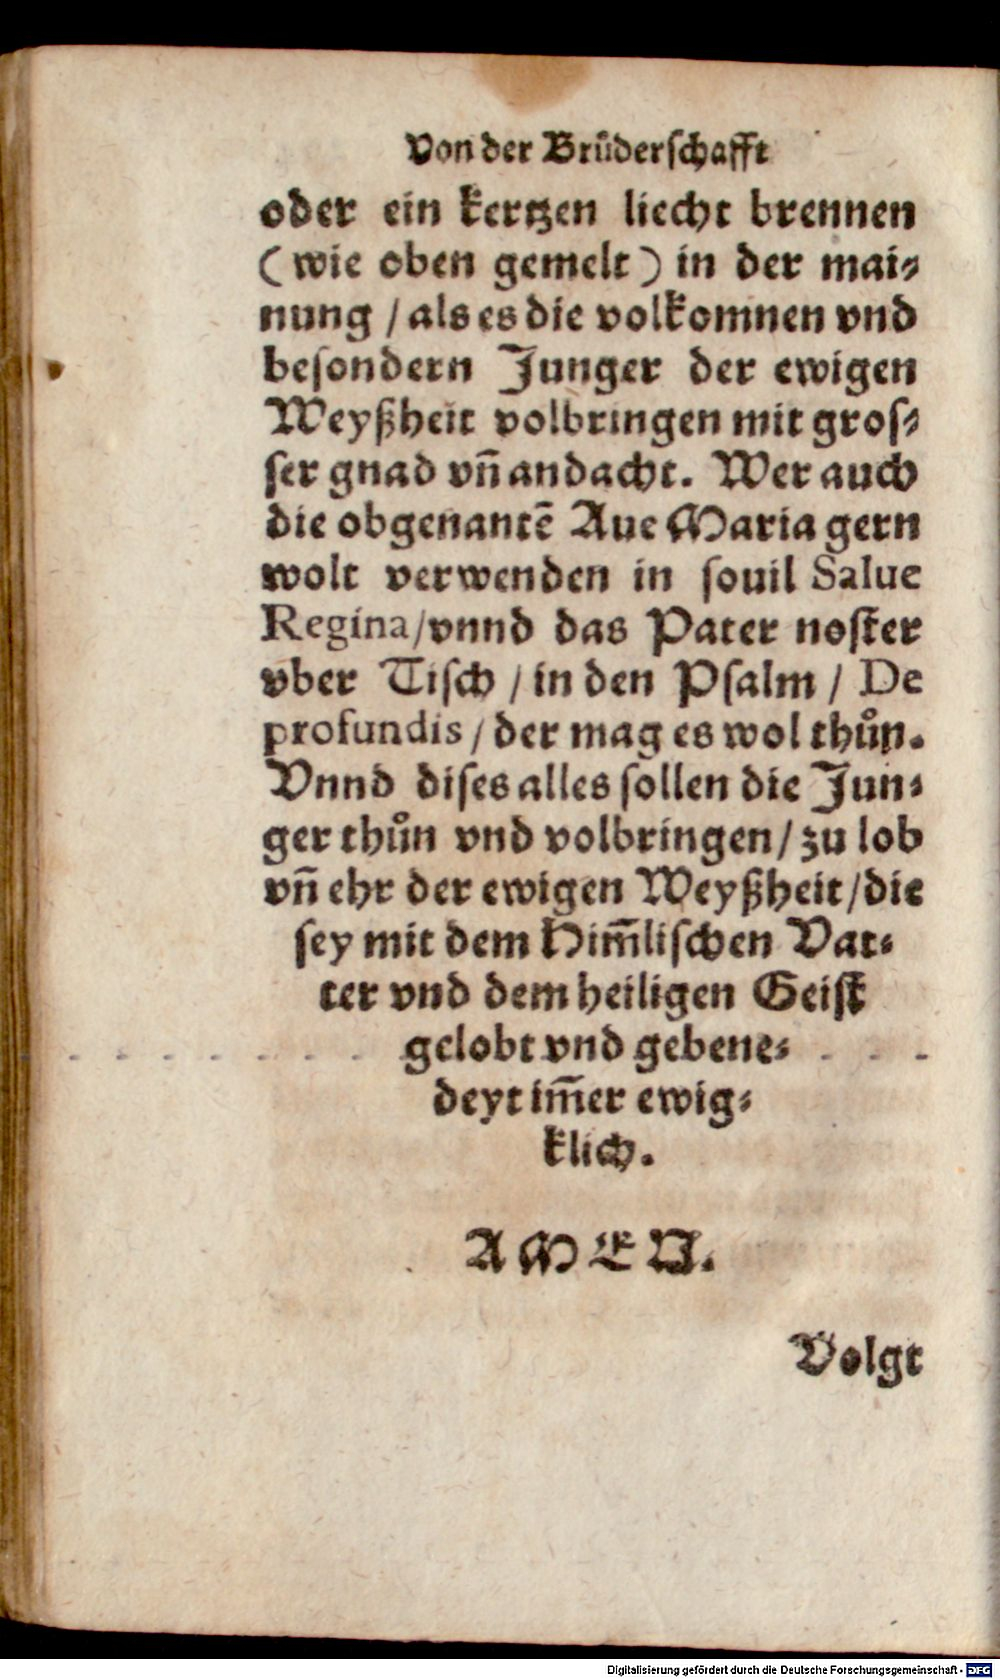 Von der Brůderschafft
oder ein kertzen liecht brennen
(wie oben gemelt) in der mai⸗
nung / als es die volkomnen vnd
besondern Junger der ewigen
Weyßheit volbringen mit gros⸗
ser gnad vn̄ andacht. Wer auch
die obgenantē Aue Maria gern
wolt verwenden in souil Salue
Regina/vnnd das Pater noster
vber Tisch / in den Psalm / De
profundis / der mag es wol thůn.
Vnnd dises alles sollen die Jun⸗
ger thůn vnd volbringen / zu lob
vn̄ ehr der ewigen Weyßheit / die
sey mit dem Him̄lischen Vat⸗
ter vnd dem heiligen Geist
gelobt vnd gebene⸗
deyt im̄er ewig⸗
klich.
AMEN.
Volgt
Digitalisierung gefördert durch die Deutsche Forschungsgemeinschaft - DFG